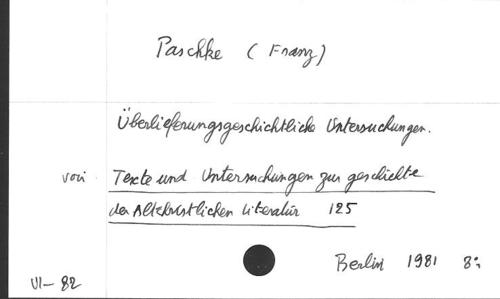 Paschke (Franz)
Überlieferungsgeschichtliche Untersuchungen.
voir Texte und Untersuchungen zur geschichte
der Altchristlichen Literatur 125
Berlin 1981 8°
VI-82